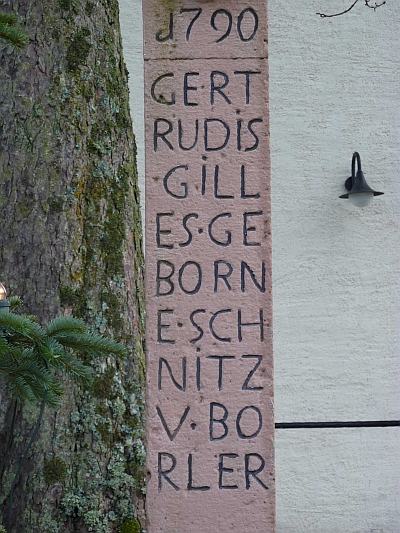 d790
GERT
RUDIS
GILL
ES·GE
BORN
E·SCH
NITZ
V·BO
RLER